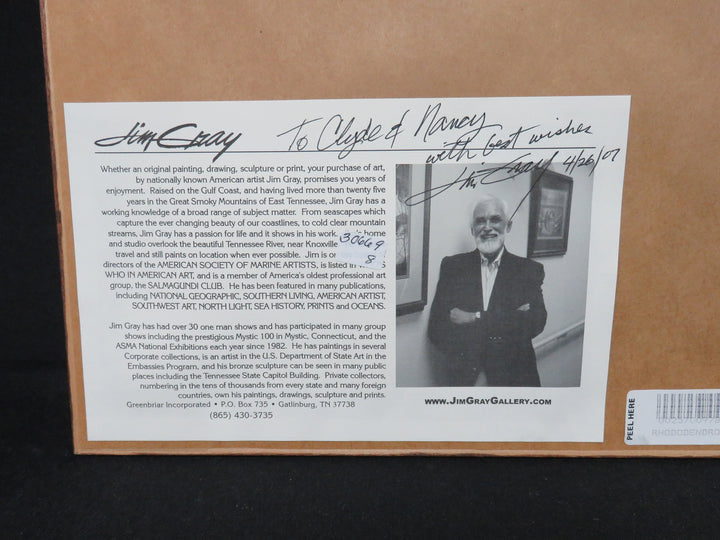 Jim Gray
To Clyde & Nancy
with best wishes
Jim Gray 4/26/07
Whether an original painting, drawing, sculpture or print, your purchase of art,
by nationally known American artist Jim Gray, promises you years of
enjoyment. Raised on the Gulf Coast, and having lived more than twenty five
years in the Great Smoky Mountains of East Tennessee, Jim Gray has a
working knowledge of a broad range of subject matter. From seascapes which
capture the ever changing beauty of our coastlines, to cold clear mountain
streams, Jim Gray has a passion for life and it shows in his work. home
and studio overlook the beautiful Tennessee River, near Knoxville
travel and still paints on location when ever possible. Jim is
directors of the AMERICAN SOCIETY OF MARINE ARTISTS, is listed in
WHO IN AMERICAN ART, and is a member of America's oldest professional art
group, the SALMAGUNDI CLUB. He has been featured in many publications,
including NATIONAL GEOGRAPHIC, SOUTHERN LIVING, AMERICAN ARTIST,
SOUTHWEST ART, NORTH LIGHT, SEA HISTORY, PRINTS and OCEANS.
30669
8
Jim Gray has had over 30 one man shows and has participated in many group
shows including the prestigious Mystic 100 in Mystic, Connecticut, and the
ASMA National Exhibitions each year since 1982. He has paintings in several
Corporate collections, is an artist in the U.S. Department of State Art in the
Embassies Program, and his bronze sculpture can be seen in many public
places including the Tennessee State Capitol Building. Private collectors,
numbering in the tens of thousands from every state and many foreign
countries, own his paintings, drawings, sculpture and prints.
Greenbriar Incorporated • P.O. Box 735 • Gatlinburg, TN 37738
(865) 430-3735
www.JimGrayGallery.com
PEEL HERE